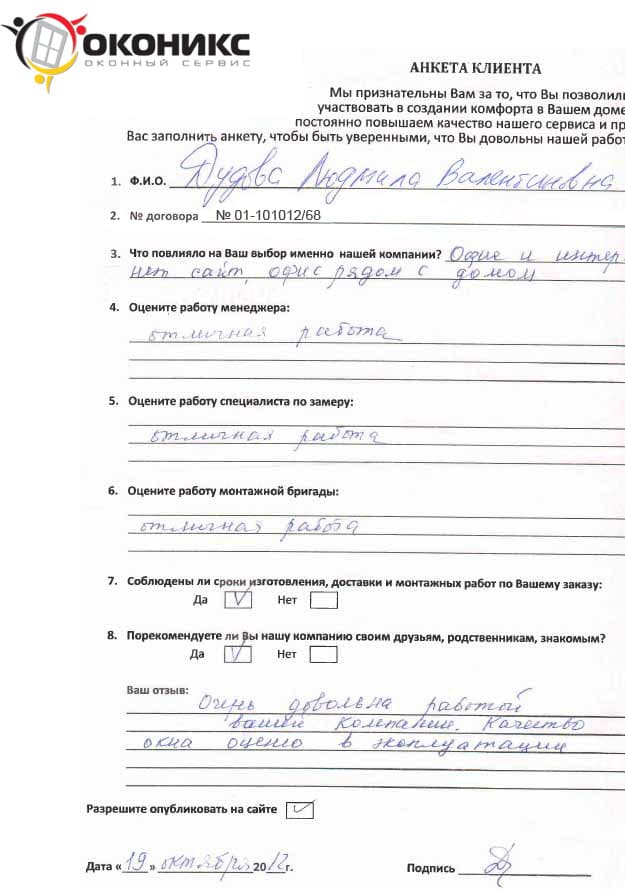 ОКОНИКС
ОКОННЫЙ СЕРВИС
АНКЕТА КЛИЕНТА
Мы признательны Вам за то, что Вы позволил
участвовать в создании комфорта в Вашем доме
постоянно повышаем качество нашего сервиса и пр
Вас заполнить анкету, чтобы быть уверенными, что Вы довольны нашей работ
1. Ф.И.О. Дудова Людмила Валентиновна
2. № договора № 01-101012/68
3. Что повлияло на Ваш выбор именно нашей компании? Офис и интер
нет сайт, офис рядом с домом
4. Оцените работу менеджера:
отличная работа
5. Оцените работу специалиста по замеру:
отличная работа
6. Оцените работу монтажной бригады:
отличная работа
7. Соблюдены ли сроки изготовления, доставки и монтажных работ по Вашему заказу:
Да V Нет
8. Порекомендуете ли Вы нашу компанию своим друзьям, родственникам, знакомым?
Да V Нет
Ваш отзыв:
Очень довольна работой
вашей компании. Качество
окна оценю в эксплуатации
Разрешите опубликовать на сайте ✓
Дата «19» октября 2012г. Подпись